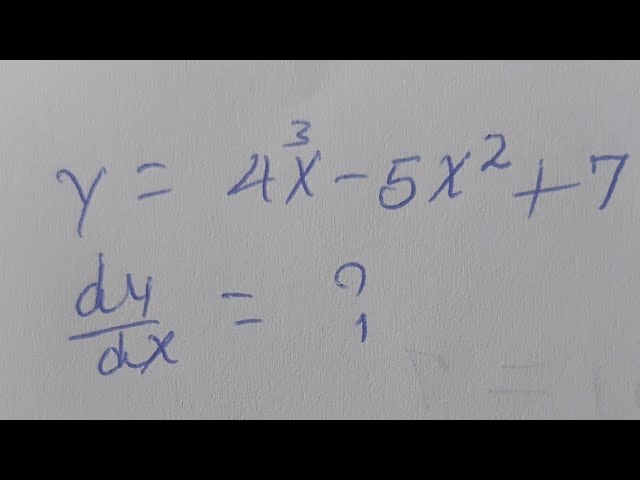 y = 4x³ - 5x² + 7
dy/dx = ?